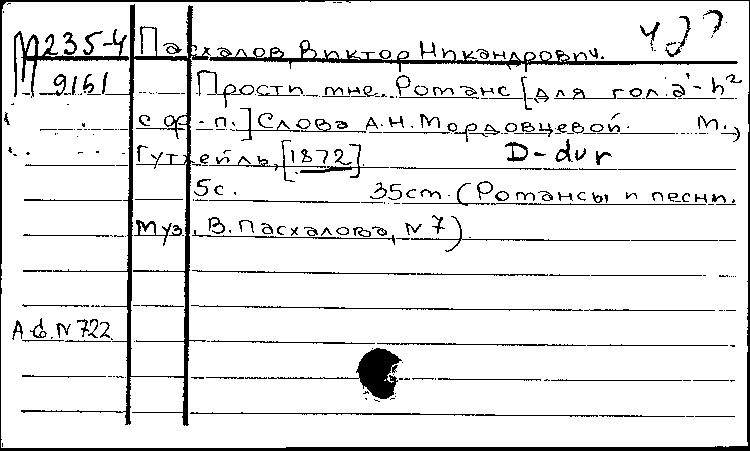 М 235-4 Пасхалов, Виктор Никандрович.
9161 Прости мне. Романс [для гол. a¹-h²
с ф.-п.] Слова А.Н. Мордовцевой. М.,
Гутхейль, [1872] D-dur
5с. 35см. (Романсы и песни.
Муз. В. Пасхалова, N 7).
А-6. N 722